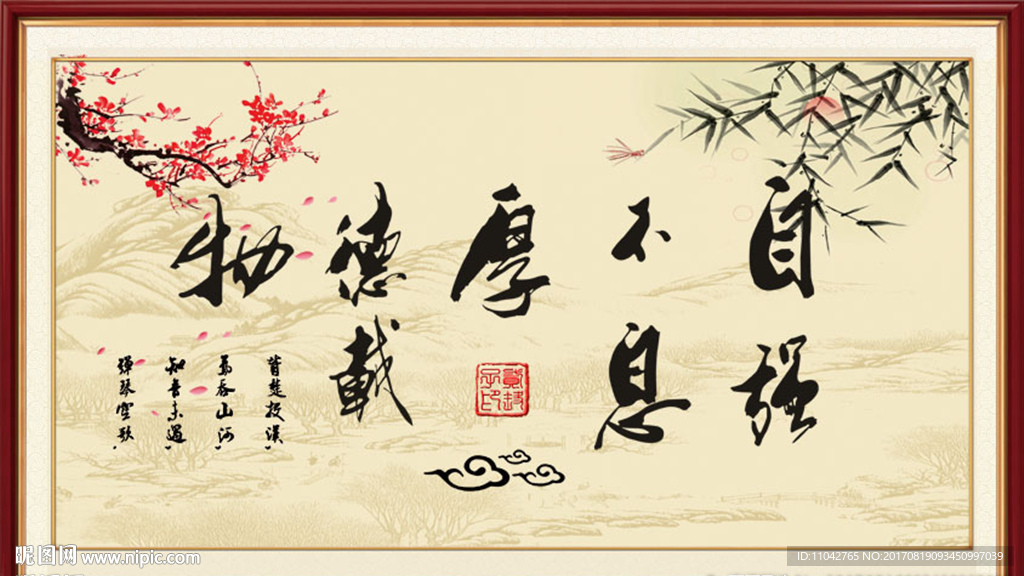 自强
不息
厚
德载
物
背楚投漢,
吞山河,
知音未遇,
彈琴空歌.
昵图网 www.nipic.com
ID:11042765 NO:20170819093450997039